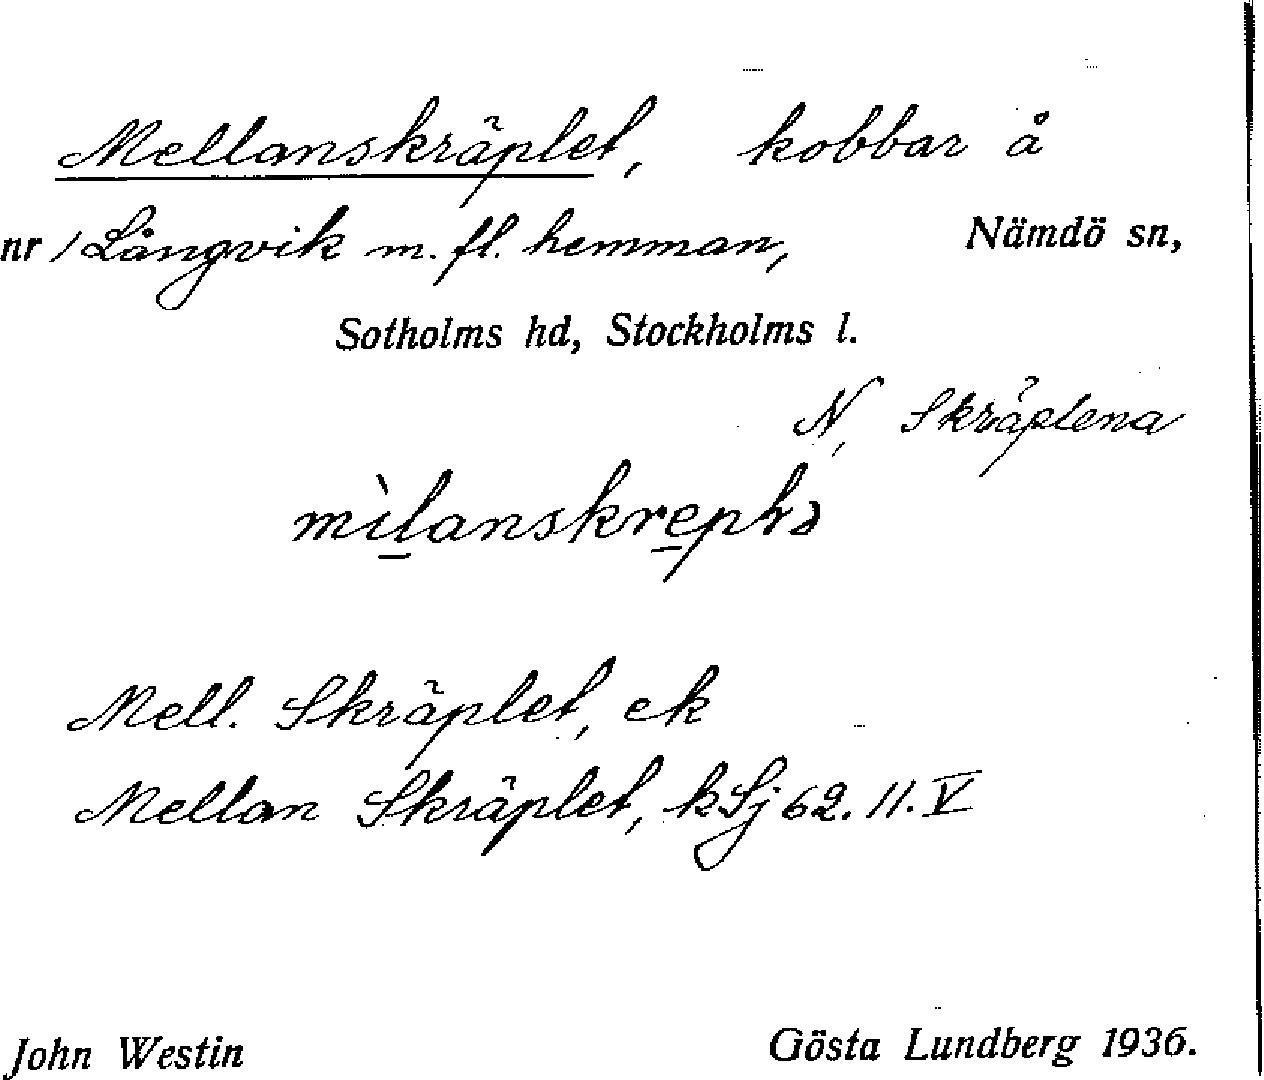 Mellanskräplet, kobbar å
nr 1 Långvik m. fl. hemman, Nämdö sn,
Sotholms hd, Stockholms l.
N, Skräplena
mìlanskreplə
Mell. Skräplet, ek
Mellan Skräplet, kSj 62. 11. V
John Westin Gösta Lundberg 1936.